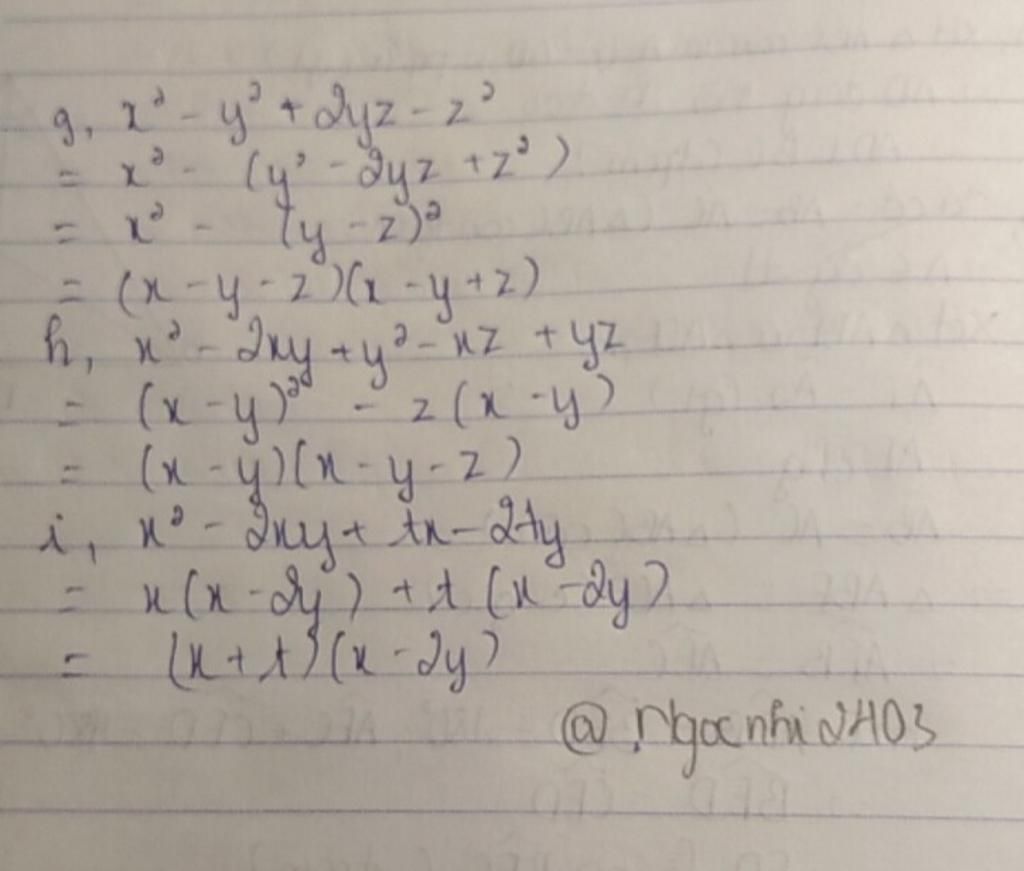 g, x² - y² + 2yz - z²
= x² - (y² - 2yz + z²)
= x² - (y - z)²
= (x - y - z)(x - y + z)
h, x² - 2xy + y² - xz + yz
= (x - y)² - z(x - y)
= (x - y)(x - y - z)
i, x² - 2xy + tx - 2ty
= x(x - 2y) + t(x - 2y)
= (x + t)(x - 2y)
@Ngocnhi2403